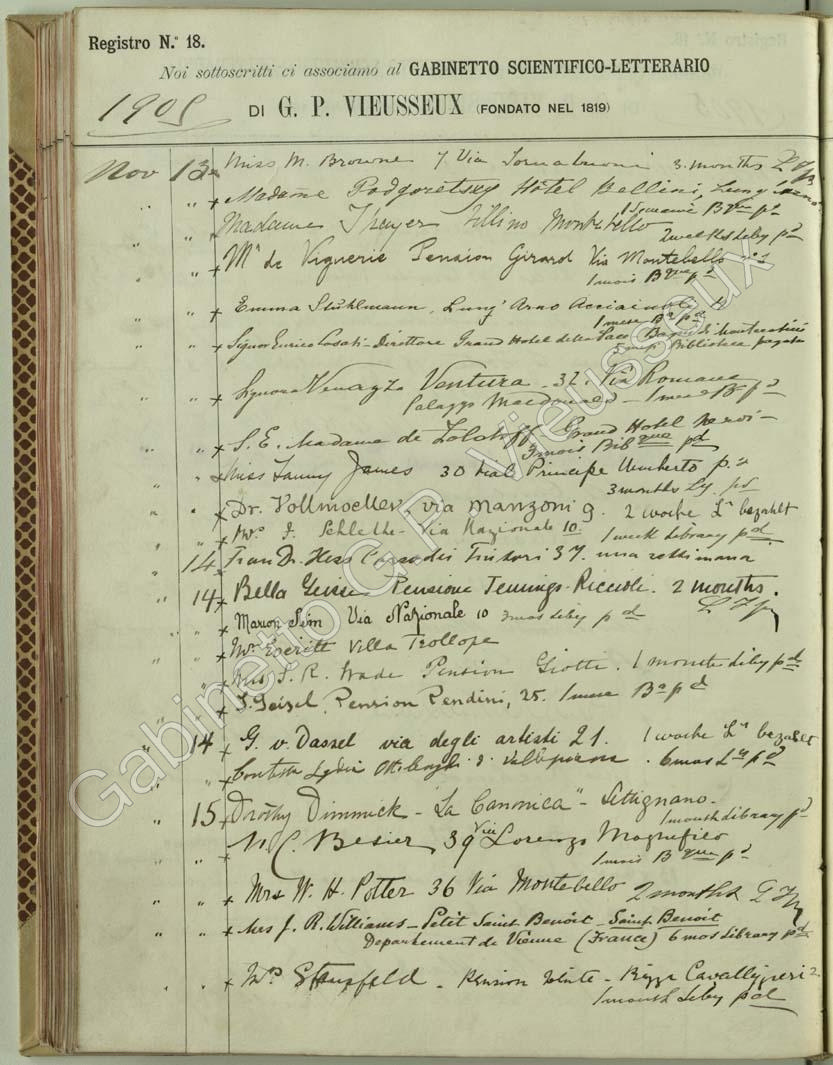 Registro N.º 18.
Noi sottoscritti ci associamo al GABINETTO SCIENTIFICO-LETTERARIO
1905
DI G. P. VIEUSSEUX (FONDATO NEL 1819)
Nov 13 Miss M. Browne 7 Via Tornabuoni 3 months
" " + Madame Podgoretsky Hôtel Bellini, Lung'Arno
1 Semaine Bque pd
" + Madame Thayer Villino Montebello
2 weeks Liby pd
" + Mr de Viguerie Pension Girard Via Montebello
1 mois Bque pd
" " + Emma Stuhlmann, Lung' Arno Acciaiuoli
1 mese Ba pd
" " + Signor Enrico Casati Direttore Grand Hotel della Pace Bagni di Montecatini
Biblioteca pagato
" " + Signora Ventura 32. Via Romana
Palazzo Macdonald - 1 mese B. pd
" + S. E. Madame de Grand Hotel
3 mois Bibque pd
" + Miss Fanny James 30 Principe Umberto p.
3 months Ly pd
" + Dr. Vollmoeller, via Manzoni 9. 2 woche La bezahlt
" + Via Nazionale 10. 1 week Library pd
14 + Frau Dr. Hess Corso dei Tintori 37. una settimana
14 + Bella Pensione Jennings-Riccioli. 2 months.
" + Marion Sim Via Nazionale 10 3 mos Liby pd
" " + Mr Everett Villa Trollope
" " + Wade Pension Giotti. 1 month Liby pd
" " + Pension Pendini, 25. 1 mese Ba pd
" 14 + G. v. Dassel via degli artisti 21. 1 woche La bezahlt
" " + 6 mos Ly pd
" 15 + Dorothy Dimmick - "La Canonica" - Settignano.
1 month Library pd
" " + Besier 39 Via Lorenzo Magnifico
1 mois Bque pd
" " + Mrs W. H. Potter 36 Via Montebello 2 months
" " + Mrs J. R. Williams - Petit Saint Benoît - Saint Benoit
Departement de Vienne (France) 6 mos Library pd
" " + Stansfeld - Pension White - Cavalleggieri 2
1 month Liby pd
Gabinetto G.P. Vieusseux